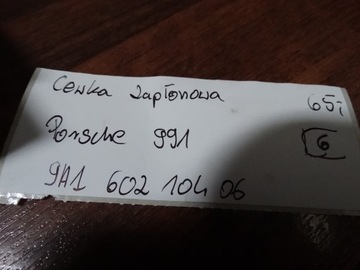 Cewka zapłonowa 65,-
Porsche 991 6
9A1 602 104 06